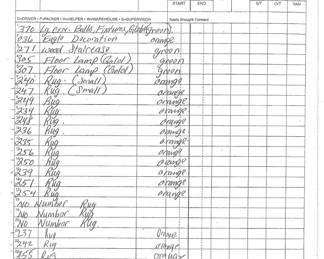 START END S/T O/T VAN
D=DRIVER P=PACKER H=HELPER W=WAREHOUSE S=SUPERVISOR Totals Brought Forward
370 Lg. Bulbs, Fixtures, green
036 Eagle Decoration orange
271 wood Staircase green
305 Floor Lamp (Gold) green
307 Floor Lamp (Gold) green
240 Rug - (small) orange
247 Rug. (Small) orange
249 Rug orange
234 Rug orange
248 Rug orange
236 Rug orange
235 Rug orange
256 Rug orange
250 Rug orange
239 Rug orange
251 Rug orange
254 Rug orange
No Number Rug
No Number Rug
No Number Rug
237 Rug orange
242 Rug orange
255 Rug orange